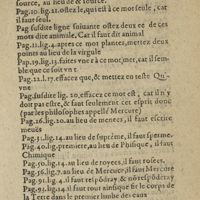 source, au lieu de & source.
Pag.10.lig.21.ostez le, qui est à ce mot seule, car
il faut seul.
Pag susdite ligne suiuante ostez deux ce de ces
mots dite animale, Car il faut dit animal
Pag.11.lig.4.apres ce mot plantes, mettez deux
points au lieu de la virgule
Pap.19.lig.13.faites vne r à ce mot, mer, car il sem-
ble que ce soit vn t
Pag.22.l.17.effacez que, & mettez en teste Qu'-
vne
Pag. susdite lig. 20. effacez ce mot est, car il n'y
doit pas estre, & faut seulement cet esprit donc
(par les philosophes appellé Mercure)
Pag.26.lig.20. au lieu de mentes, il faut escrire
meuës
Pag.31.lig.14. au lieu de supréme, il faut sperme.
Pag.40.lig.premiere, au lieu de Phisique, il faut
Chimique
Pag.50.lig.14. au lieu de royees, il faut rosées.
Pag.56.lig.7. au lieu de Mercuer il faut Mercure
Pag.91.lig.4. il faut respōdiray & nōrespōderay
Pag.93.lig.14. il faut tour ainsi que sir le corps de
la Terre dans le premier limbe des eaux